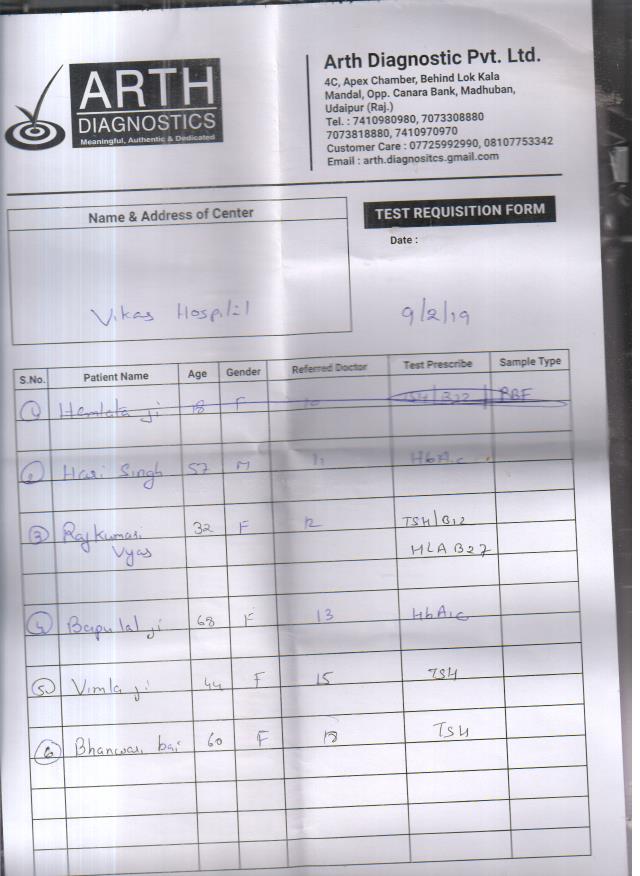 ARTH
DIAGNOSTICS
Meaningful, Authentic & Dedicated
Arth Diagnostic Pvt. Ltd.
4C, Apex Chamber, Behind Lok Kala
Mandal, Opp. Canara Bank, Madhuban,
Udaipur (Raj.)
Tel. : 7410980980, 7073308880
7073818880, 7410970970
Customer Care : 07725992990, 08107753342
Email : arth.diagnositcs.gmail.com
Name & Address of Center
TEST REQUISITION FORM
Date :
Vikas Hospital
9/2/19
S.No. Patient Name Age Gender Referred Doctor Test Prescribe Sample Type
1 Hemlata ji 18 F 10 TSH/B12
2 Hari Singh 57 M 11 HbA1c
3 Rajkumari 32 F 12 TSH/B12
Vyas HLA B27
4 Bapulal ji 68 F 13 HbA1c
5 Vimla ji 44 F 15 TSH
6 Bhanwar bai 60 F 18 TSH